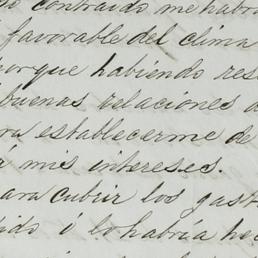 contraido me habrá
favorable del clima
porque habiendo res
buenas relaciones d
ra establecerme de
á mis intereses.
para cubrir los gast
dido ó lo habria hec